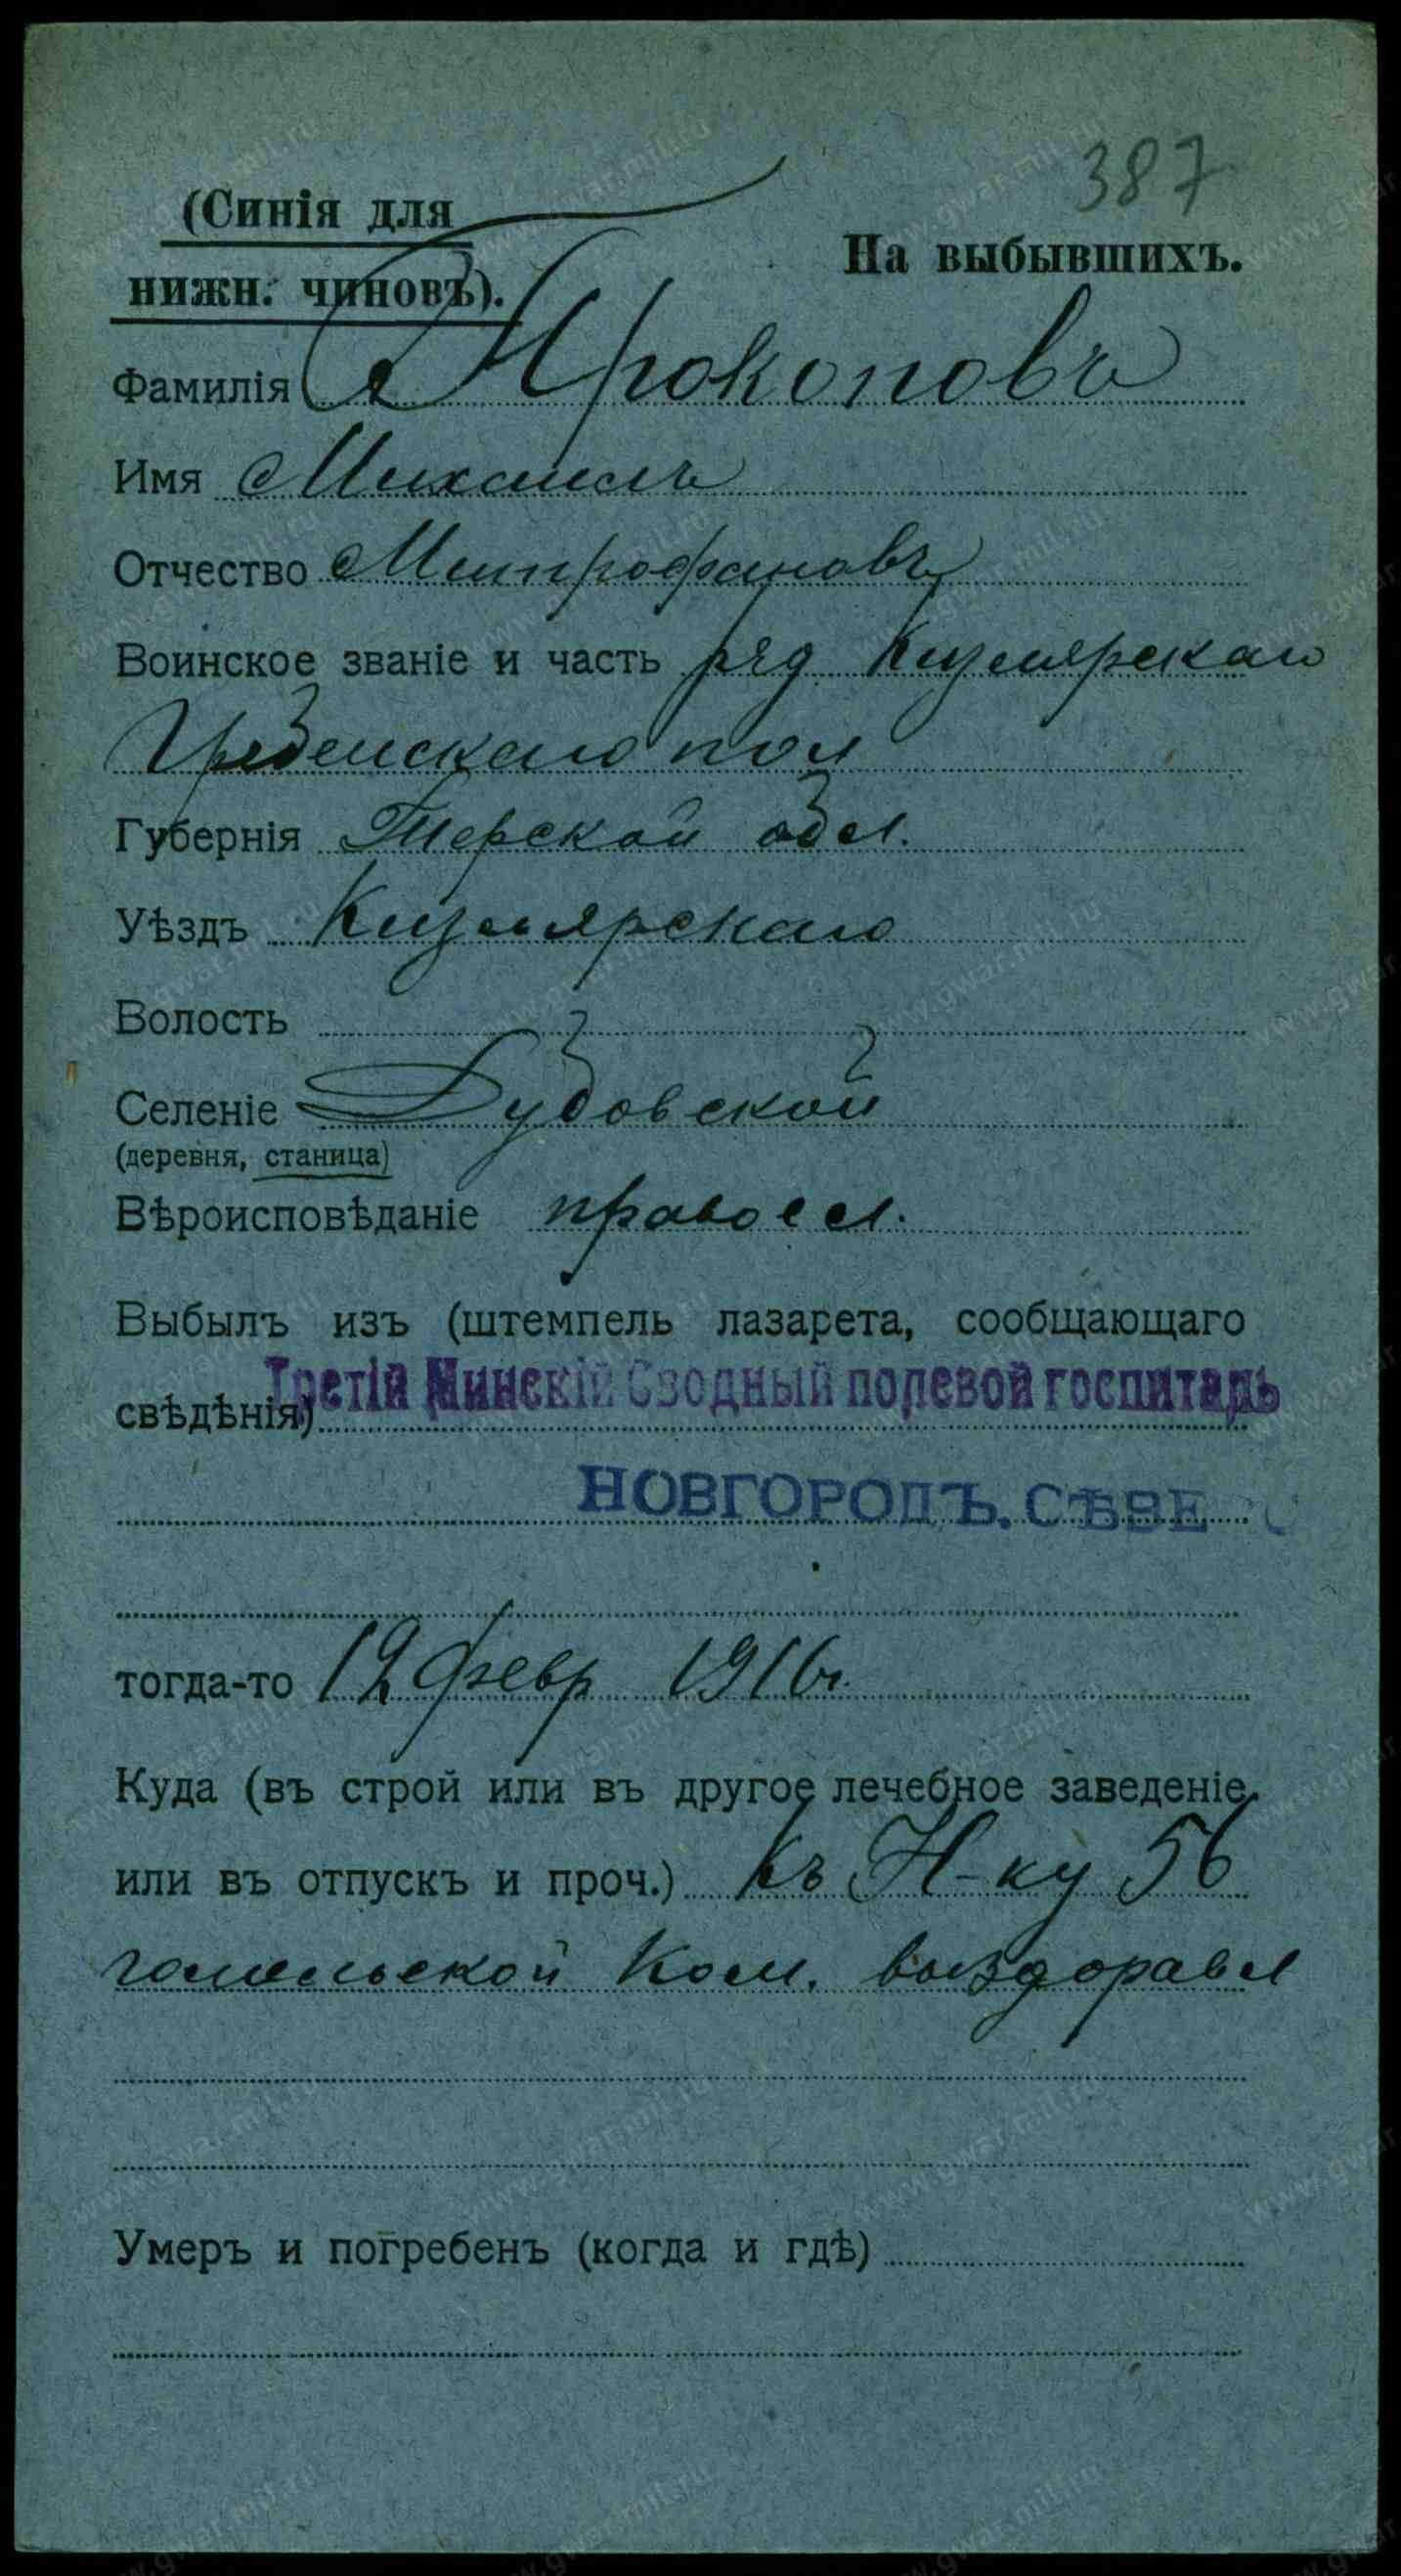 387
(Синія для
На выбывшихъ.
нижн. чиновъ).
Фамилія Прокоповъ
Имя Михаилъ
Отчество Митрофановъ
Воинское званіе и часть ряд Кизлярскаго
Гребенскаго пол
Губернія Терской обл.
Уѣздъ Кизлярскаго
Волость
Селеніе Дубовской
(деревня, станица)
Вѣроисповѣданіе правосл.
Выбылъ изъ (штемпель лазарета, сообщающаго
свѣдѣнія) Третій Минскій Сводный полевой госпиталь
НОВГОРОДЪ. СѢВЕ
тогда-то 12 февр 1916г.
Куда (въ строй или въ другое лечебное заведеніе,
или въ отпускъ и проч.) Къ Н-ку 56
гомельской Ком. выздоравл
Умеръ и погребенъ (когда и гдѣ)